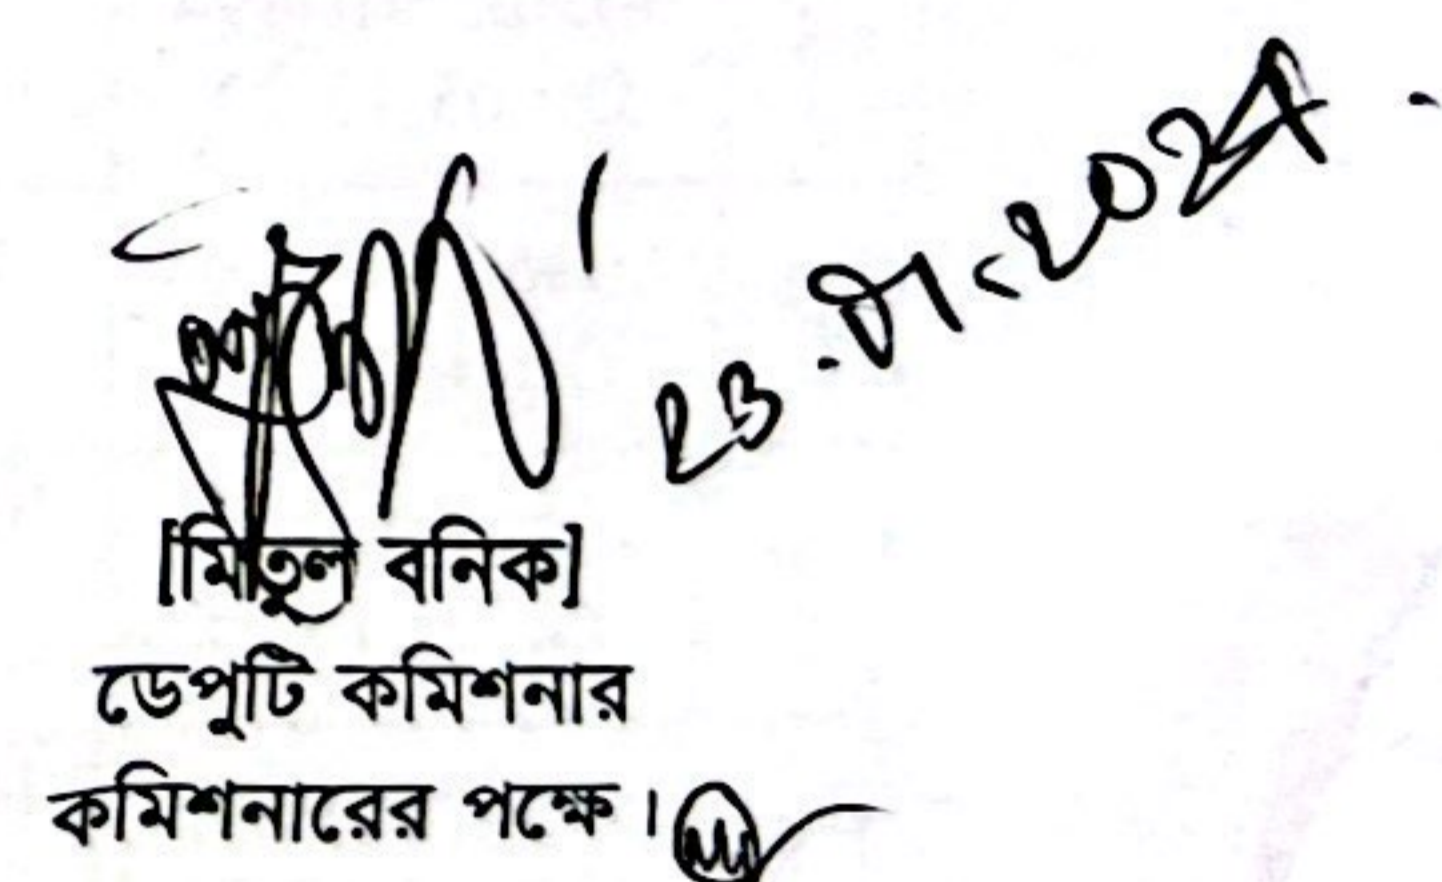 23.01.2024
[মিতুল বনিক]
ডেপুটি কমিশনার
কমিশনারের পক্ষে।